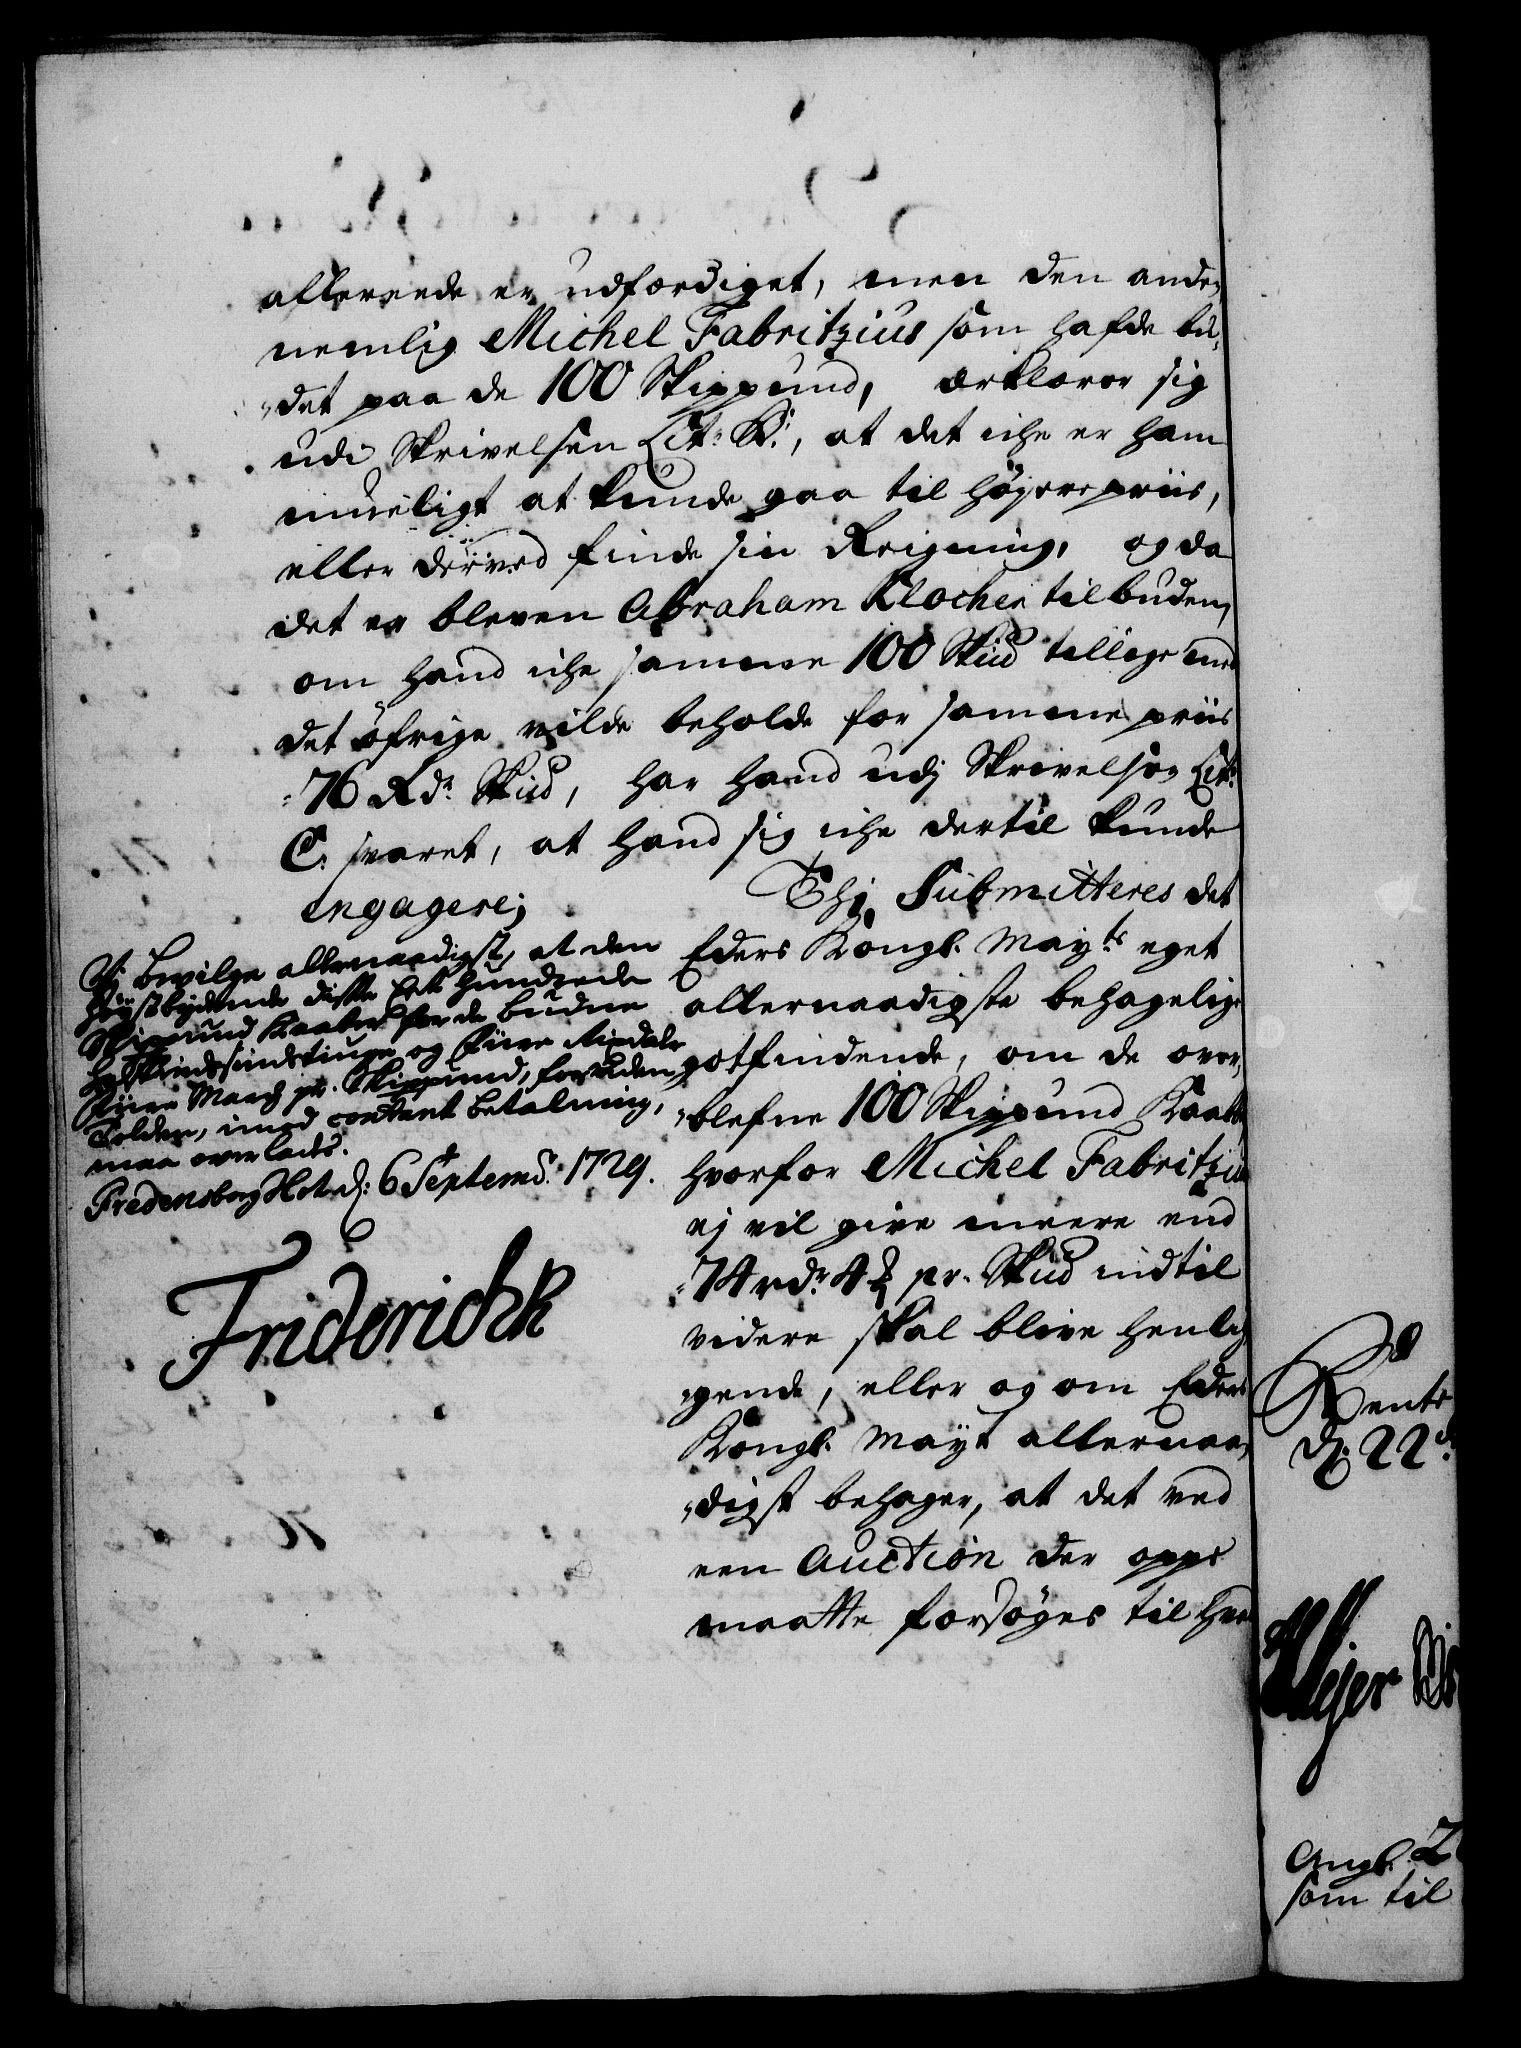 allereede er udfærdiget, men den anden
nemlig Michel Fabritzius som hafde bu-
det paa de 100 Skippund, ærklærer sig
udi Skrivelsen Lit: B:, at det iche er ham
mueligt at kunde gaa til høyere priis,
eller derved finde sin Reigning, og da
det er bleven Abraham Klöcher tilbuden,
om hand iche samme 100 Skud tillige med
det öfrige vilde beholde for samme priis
76 Rdr. Skud, har hand udj Skrivelsen Lit:
C. svaret, at hand sig iche dertil kunde
engagere;
Thj Submitteres det
Eders Kongl. Mayts. eget
allernaadigste behagelige
gotfindende, om de over-
blefne 100 Skippund Kaaber
hvorfor Michel Fabritzius
ej vil give meere end
74 rdr. 4 ß pr. Skud indtil
videre skal blive henlig-
gende, eller og om Eders
Kongl. Mayt allernaa-
digst behager, at det ved
een Auction der oppe
maatte forsøges til hvad
Vj bevilge allernaadigst, at den
høystbydende disse Eet Hundrede
Skippund Kaaber for de budne
Halvfierdesindstiuge og fiire Rixdaler
fiire March pr. Skippund, foruden
Tolden, imod contant betaling,
maa overlades.
Fredensborg Slot d: 6 Septemb: 1729.
Friderich R
Rente
d. 22d
som til